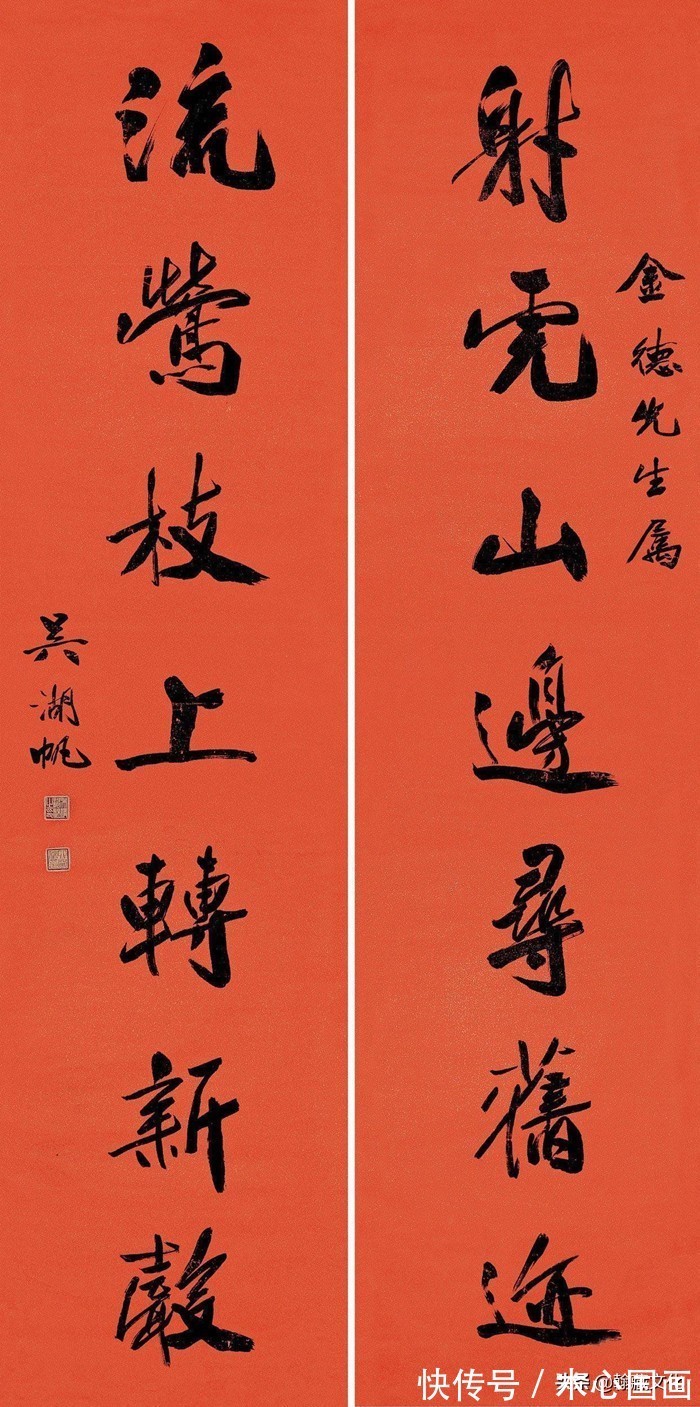 金德先生属
射虎山邊尋舊迹
流鶯枝上轉新聲
吴湖帆
快传号 / 木心国画